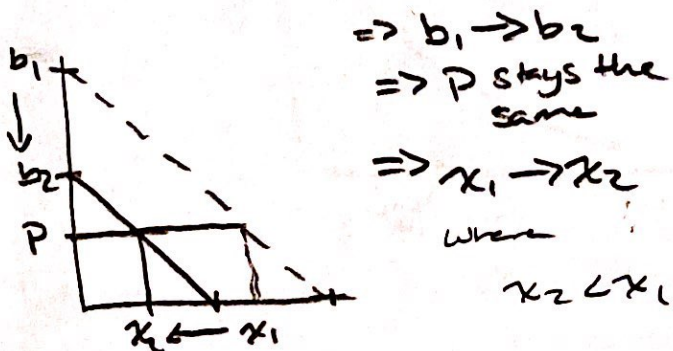 b₁
↓
b₂
P
x₂ ← x₁
=> b₁ → b₂
=> P stays the
same
=> x₁ → x₂
where
x₂ < x₁